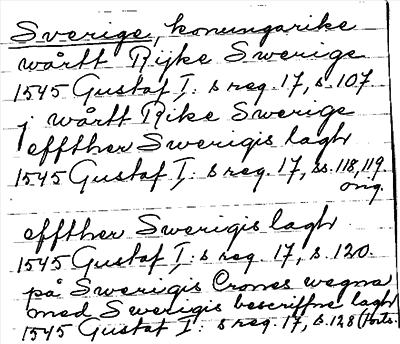 Sverige, konungarike
wårtt Rijke Swerige
1545 Gustaf I: s reg. 17, s. 107.
j wårtt Rike Swerige
effther Swerigis lagh
1545 Gustaf I: s reg. 17, ss. 118, 119.
orig.
effther Swerigis lagh
1545 Gustaf I: s reg. 17, s. 120.
på Swerigis Crones wegna
med Swerigis bescriffne lagh
1545 Gustaf I: s reg. 17, s. 128 (Forts.